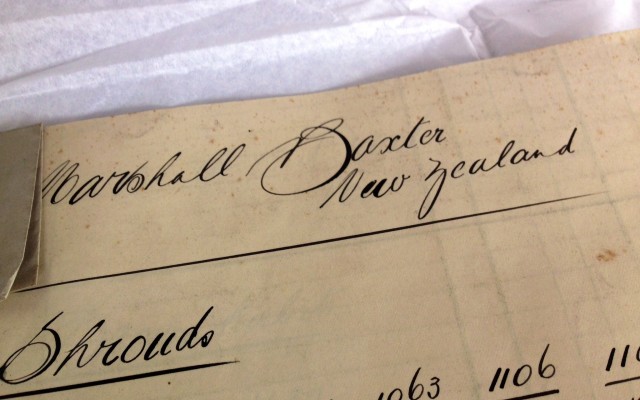 Marshall Baxter
New Zealand
Shrouds
1063 1106